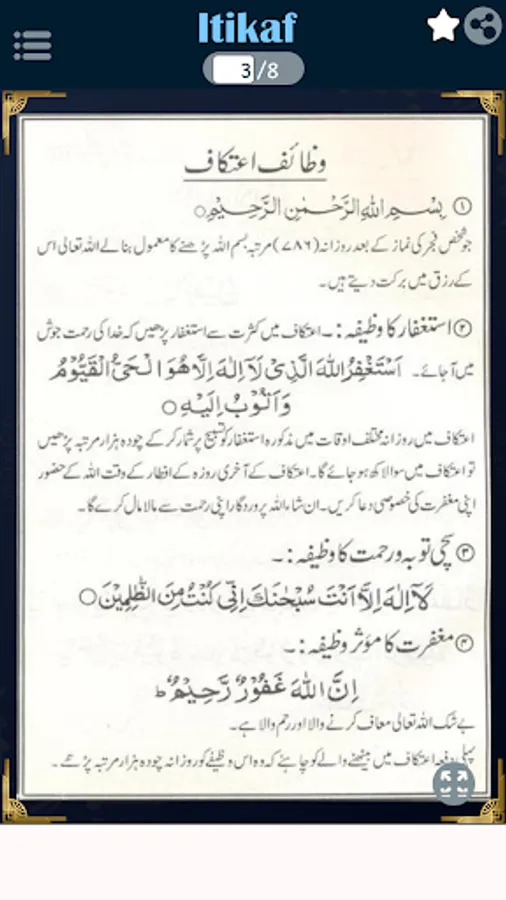 Itikaf
3/8
وظائف اعتکاف
① بِسْمِ اللهِ الرَّحْمٰنِ الرَّحِيْمِ○
جو شخص فجر کی نماز کے بعد روزانہ (۷۸۶) مرتبہ بسم اللہ پڑھنے کا معمول بنالے اللہ تعالی اس
کے رزق میں برکت دیتے ہیں۔
② استغفار کا وظیفہ:۔ اعتکاف میں کثرت سے استغفار پڑھیں کہ خدا کی رحمت جوش
میں آجائے۔ اَسْتَغْفِرُ اللهَ الَّذِىْ لَآ اِلٰهَ اِلَّا هُوَ الْحَىُّ الْقَيُّوْمُ
وَاَتُوْبُ اِلَيْهِ○
اعتکاف میں روزانہ مختلف اوقات میں مذکورہ استغفار کو تسبیح پر شمار کر کے چودہ ہزار مرتبہ پڑھیں
تو اعتکاف میں سوالاکھ ہو جائے گا۔ اعتکاف کے آخری روزہ کے افطار کے وقت اللہ کے حضور
اپنی مغفرت کی خصوصی دعا کریں۔ ان شاء اللہ پروردگار اپنی رحمت سے مالا مال کرے گا۔
③ سچی توبہ ورحمت کا وظیفہ:۔
لَآ اِلٰهَ اِلَّآ اَنْتَ سُبْحٰنَكَ اِنِّىْ كُنْتُ مِنَ الظّٰلِمِيْنَ○
④ مغفرت کا مؤثر وظیفہ:۔
اِنَّ اللهَ غَفُوْرٌ رَّحِيْمٌ ط
بے شک اللہ تعالی معاف کرنے والا اور رحم والا ہے۔
پہلی دفعہ اعتکاف میں بیٹھنے والے کو چاہئے کہ وہ اس وظیفے کو روزانہ چودہ ہزار مرتبہ پڑھے۔